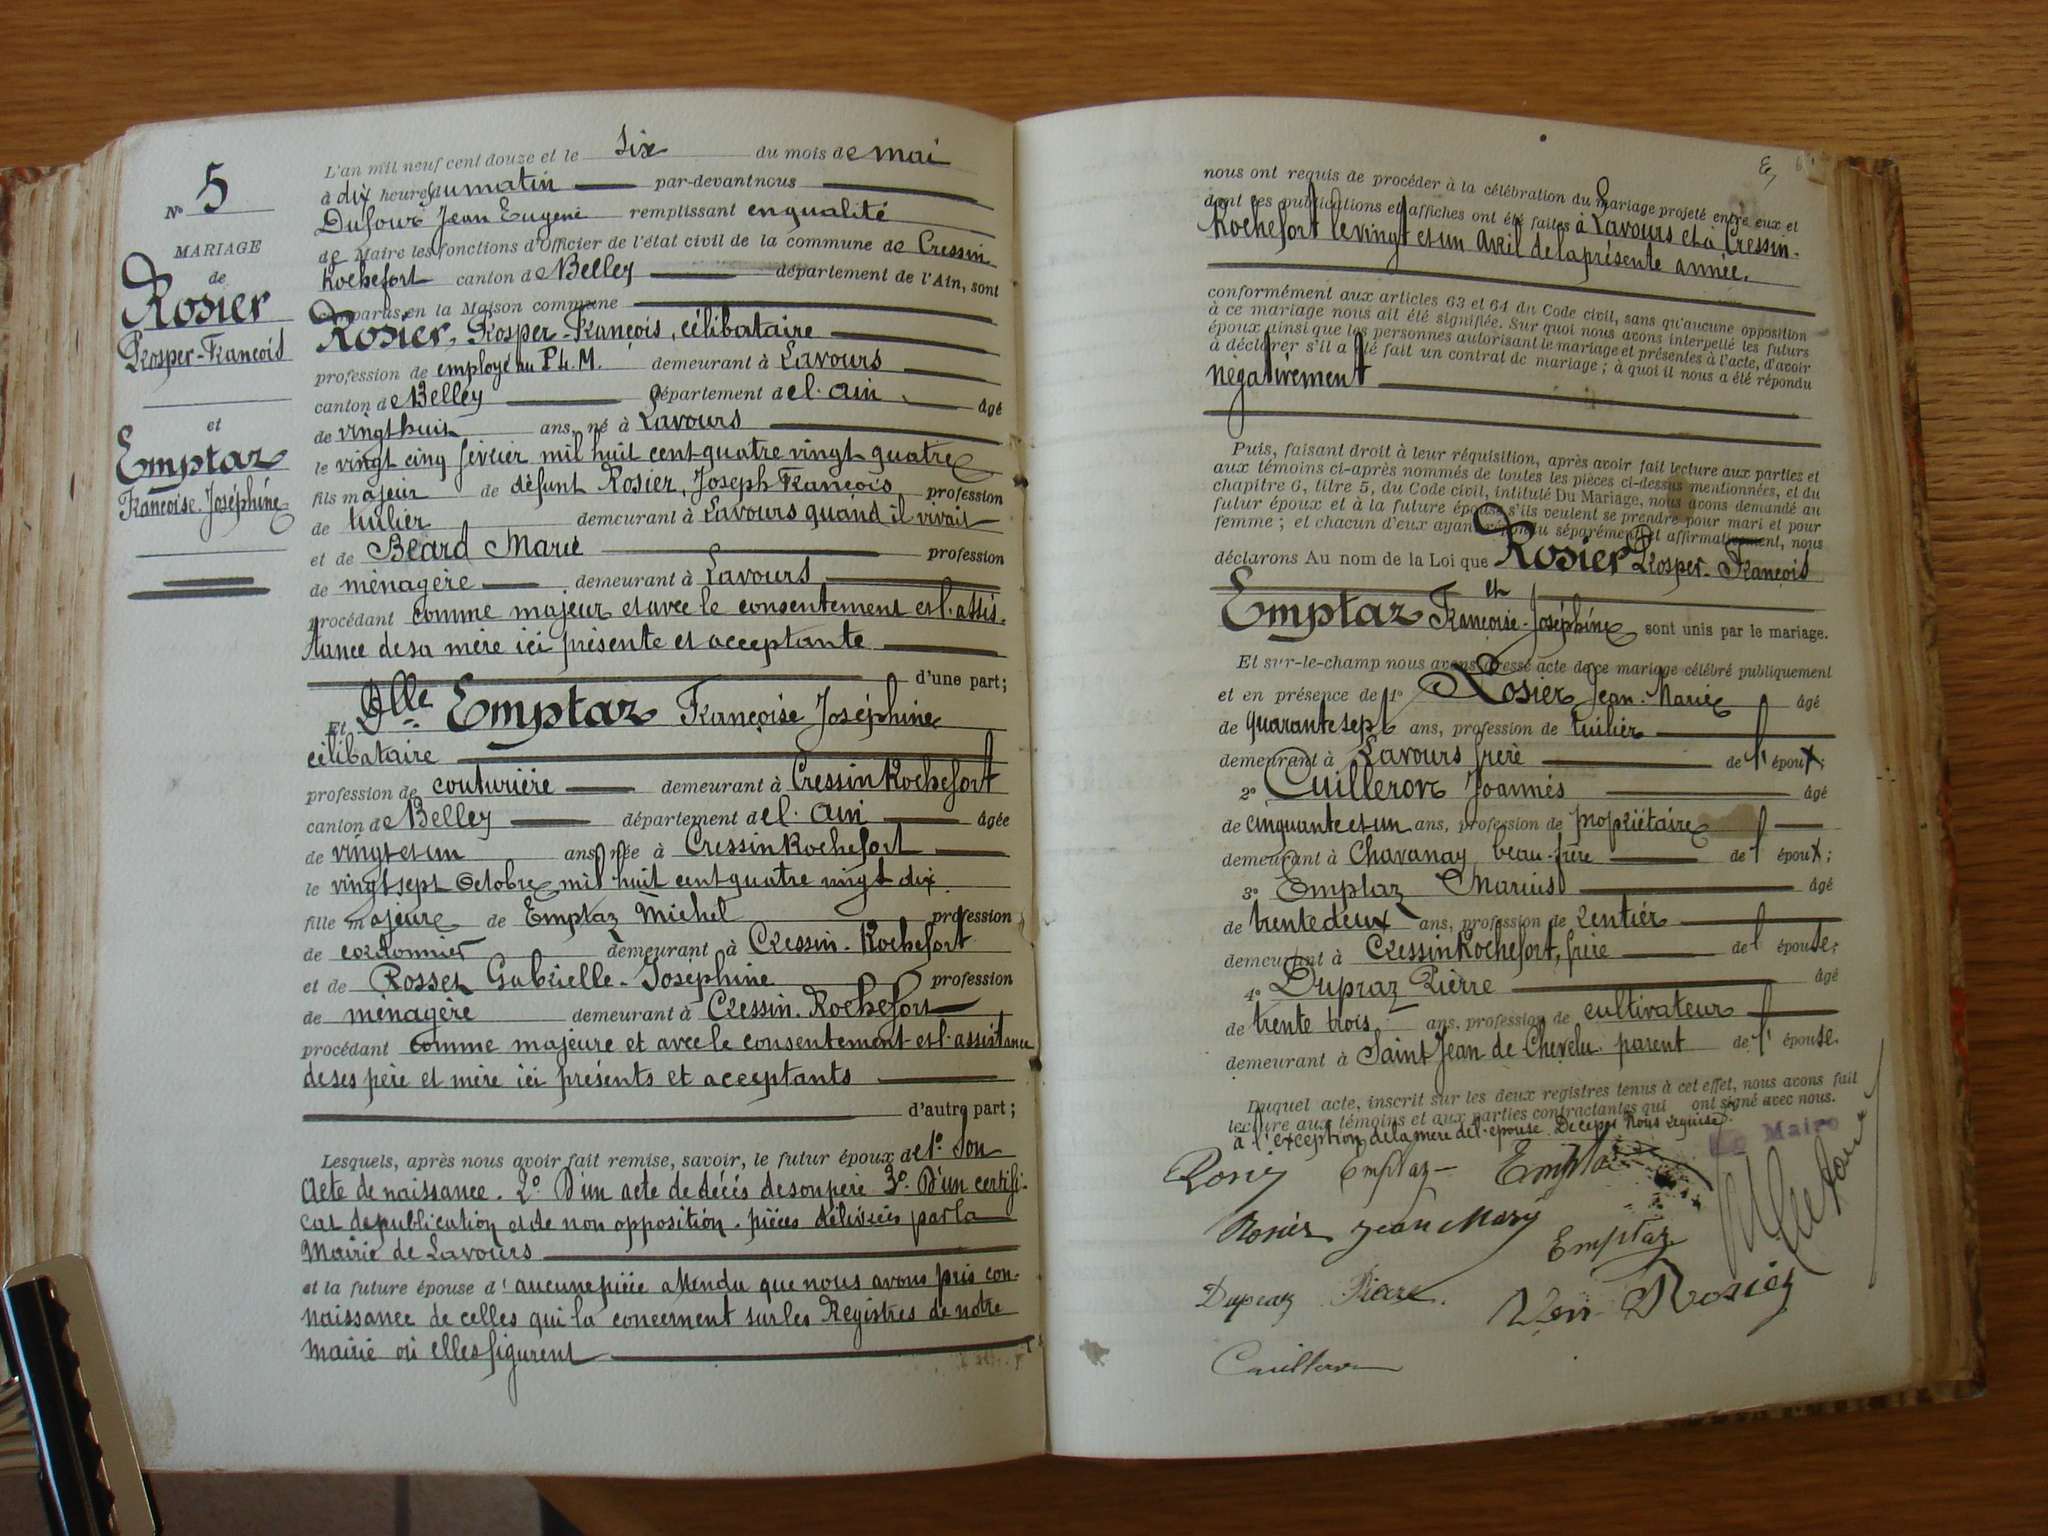 N° 5
MARIAGE
de
Rosier
Prosper-François
et
Emptaz
Françoise Joséphine
L'an mil neuf cent douze et le six du mois de mai
à dix heures du matin par-devant nous
Dufour Jean Eugène remplissant en qualité
de Maire les fonctions d'Officier de l'état civil de la commune de Cressin
Rochefort canton de Belley département de l'Ain, sont
comparus en la Maison commune
Rosier, Prosper-François, célibataire
profession de employé au P.L.M. demeurant à Lavours
canton de Belley département de l'ain âgé
de vingt huit ans, né à Lavours
le vingt cinq février mil huit cent quatre vingt quatre
fils majeur de défunt Rosier, Joseph François profession
de tuilier demeurant à Lavours quand il vivait
et de Béard Marie profession
de ménagère demeurant à Lavours
procédant comme majeur et avec le consentement et l'assis-
tance de sa mère ici présente et acceptante
d'une part;
Et Dlle Emptaz Françoise Joséphine
célibataire
profession de couturière demeurant à Cressin Rochefort
canton de Belley département de l'ain âgée
de vingt et un ans, née à Cressin Rochefort
le vingt sept Octobre mil huit cent quatre vingt dix
fille majeure de Emptaz Michel profession
de cordonnier demeurant à Cressin-Rochefort
et de Rosset Gabrielle-Joséphine profession
de ménagère demeurant à Cressin-Rochefort
procédant comme majeure et avec le consentement et l'assistance
de ses père et mère ici présents et acceptants
d'autre part;
Lesquels, après nous avoir fait remise, savoir, le futur époux de 1° son
acte de naissance. 2° D'un acte de décés de son père 3° D'un certifi-
cat de publication et de non opposition. pièces délivrées par la
Mairie de Lavours
et la future épouse d'aucune pièce attendu que nous avons pris con-
naissance de celles qui la concernent sur les Registres de notre
mairie où elles figurent
nous ont requis de procéder à la célébration du mariage projeté entre eux et
dont les publications et affiches ont été faites à Lavours et à Cressin-
Rochefort le vingt et un avril de la présente année.
conformément aux articles 63 et 64 du Code civil, sans qu'aucune opposition
à ce mariage nous ait été signifiée. Sur quoi nous avons interpellé les futurs
époux ainsi que les personnes autorisant le mariage et présentes à l'acte, d'avoir
à déclarer s'il a été fait un contrat de mariage; à quoi il nous a été répondu
négativement
Puis, faisant droit à leur réquisition, après avoir fait lecture aux parties et
aux témoins ci-après nommés de toutes les pièces ci-dessus mentionnées, et du
chapitre 6, titre 5, du Code civil, intitulé Du Mariage, nous avons demandé au
futur époux et à la future épouse s'ils veulent se prendre pour mari et pour
femme; et chacun d'eux ayant répondu séparément et affirmativement, nous
déclarons Au nom de la Loi que Rosier Prosper-François
et
Emptaz Françoise-Joséphine sont unis par le mariage.
Et sur-le-champ nous avons dressé acte de ce mariage célébré publiquement
et en présence de 1° Rosier Jean-Marie âgé
de quarante sept ans, profession de tuilier
demeurant à Lavours frère de l'époux;
2° Cuilleron Joannès âgé
de cinquante et un ans, profession de propriétaire
demeurant à Chavanay beau-frère de l'époux;
3° Emptaz Marius âgé
de trente deux ans, profession de rentier
demeurant à Cressin Rochefort, frère de l'épouse;
4° Dupraz Pierre âgé
de trente trois ans, profession de cultivateur
demeurant à Saint Jean de Chevelu parent de l'épouse.
Duquel acte, inscrit sur les deux registres tenus à cet effet, nous avons fait
lecture aux témoins et aux parties contractantes qui ont signé avec nous.
à l'exception de la mère de l'épouse. De ce par Nous requise.
Le Maire
Rosier Emptaz Emptaz
Rosier Jean Mary Emptaz
Dupraz Pierre Rosier
Cuilleron